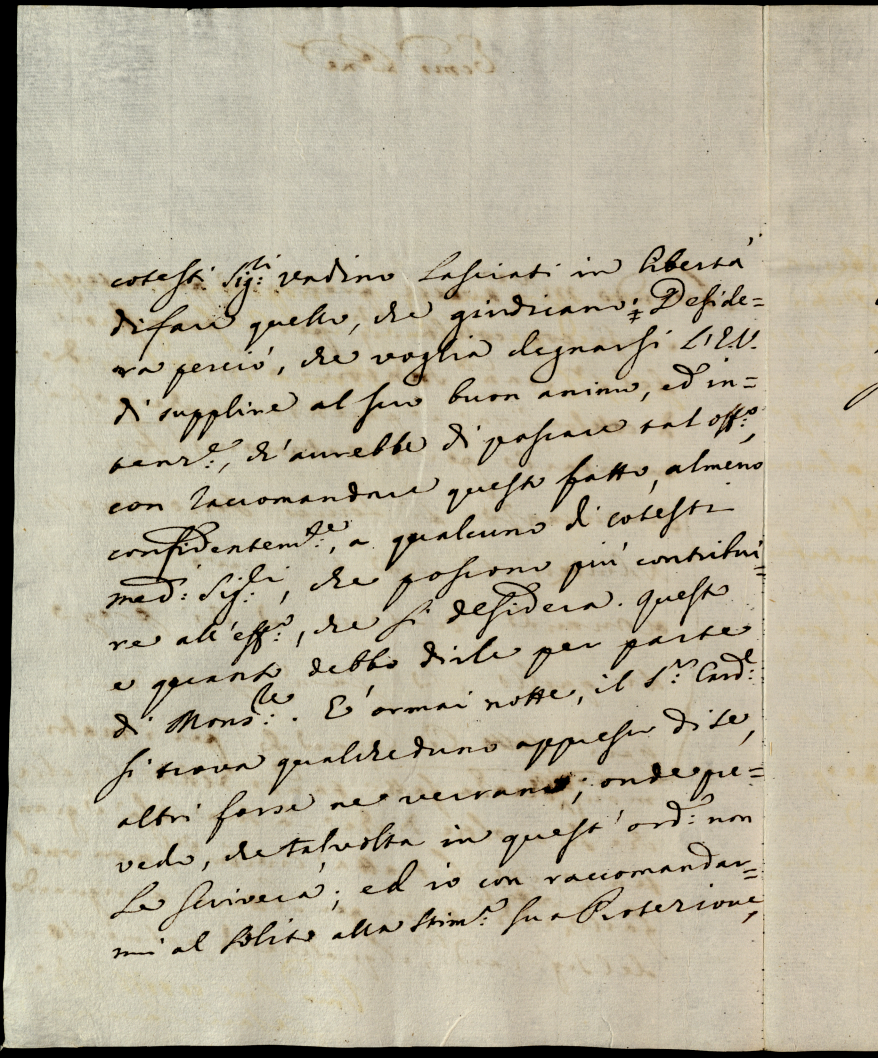 cotesti Sig:ri vendino lasciati in libertà
di fare quello, che giudicano: Deside=
ra perciò, che voglia degnarsi L'E.V.
di supplire al suo buon animo, ed in=
tenz.e, ch'aurebbe di passare tal off.o,
con raccomandare questo fatto, almeno
confidentem.te, a qualcuno di cotesti
med: Sig:ri, che possono più contribui=
re all'eff.o, che si desidera. questo
e quanto debbo dirle per parte
di Mons:re. E' ormai notte, il S.r Card:e
si trova qualcheduno appresso di se,
altri forse ne verranno; onde pre=
vedo, che talvolta in quest' ord:o non
Le scriverà; ed io con raccomandar=
mi al solito alla stim.a sua Protezione,